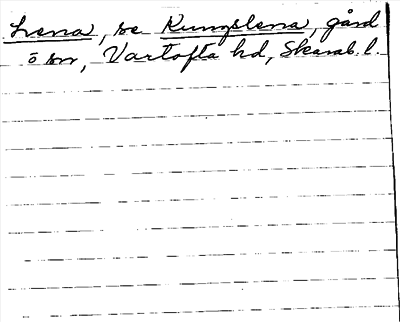 Lena, se Kungslena, gård
o sn, Vartofta hd, Skarab. l.